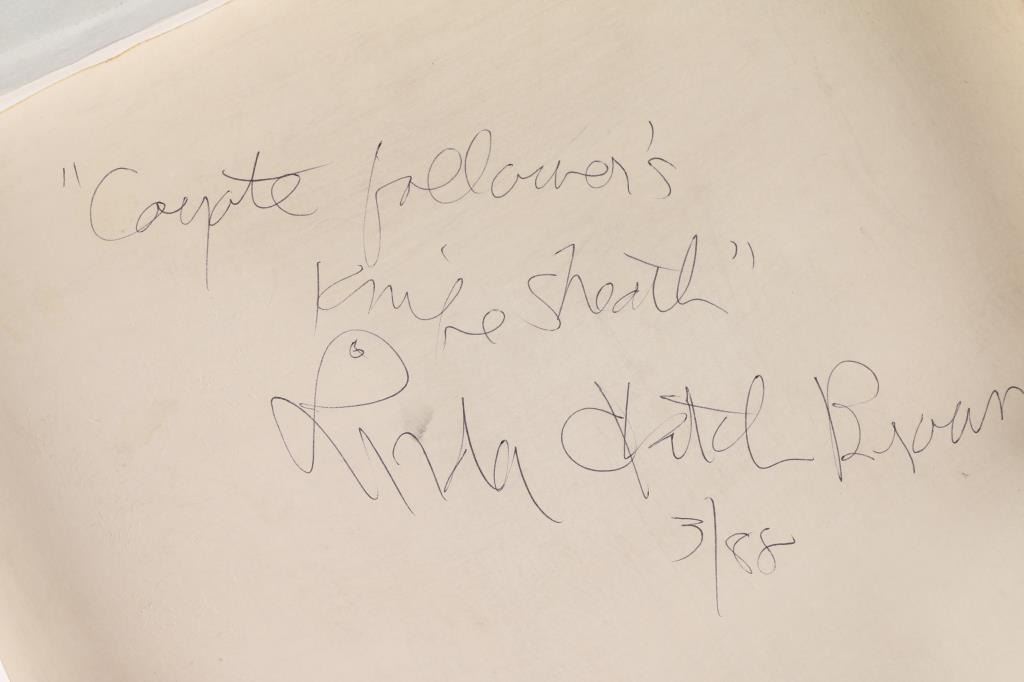 "Coyote follower's
Knife Sheath"
Linda Hatch Brown
3/88